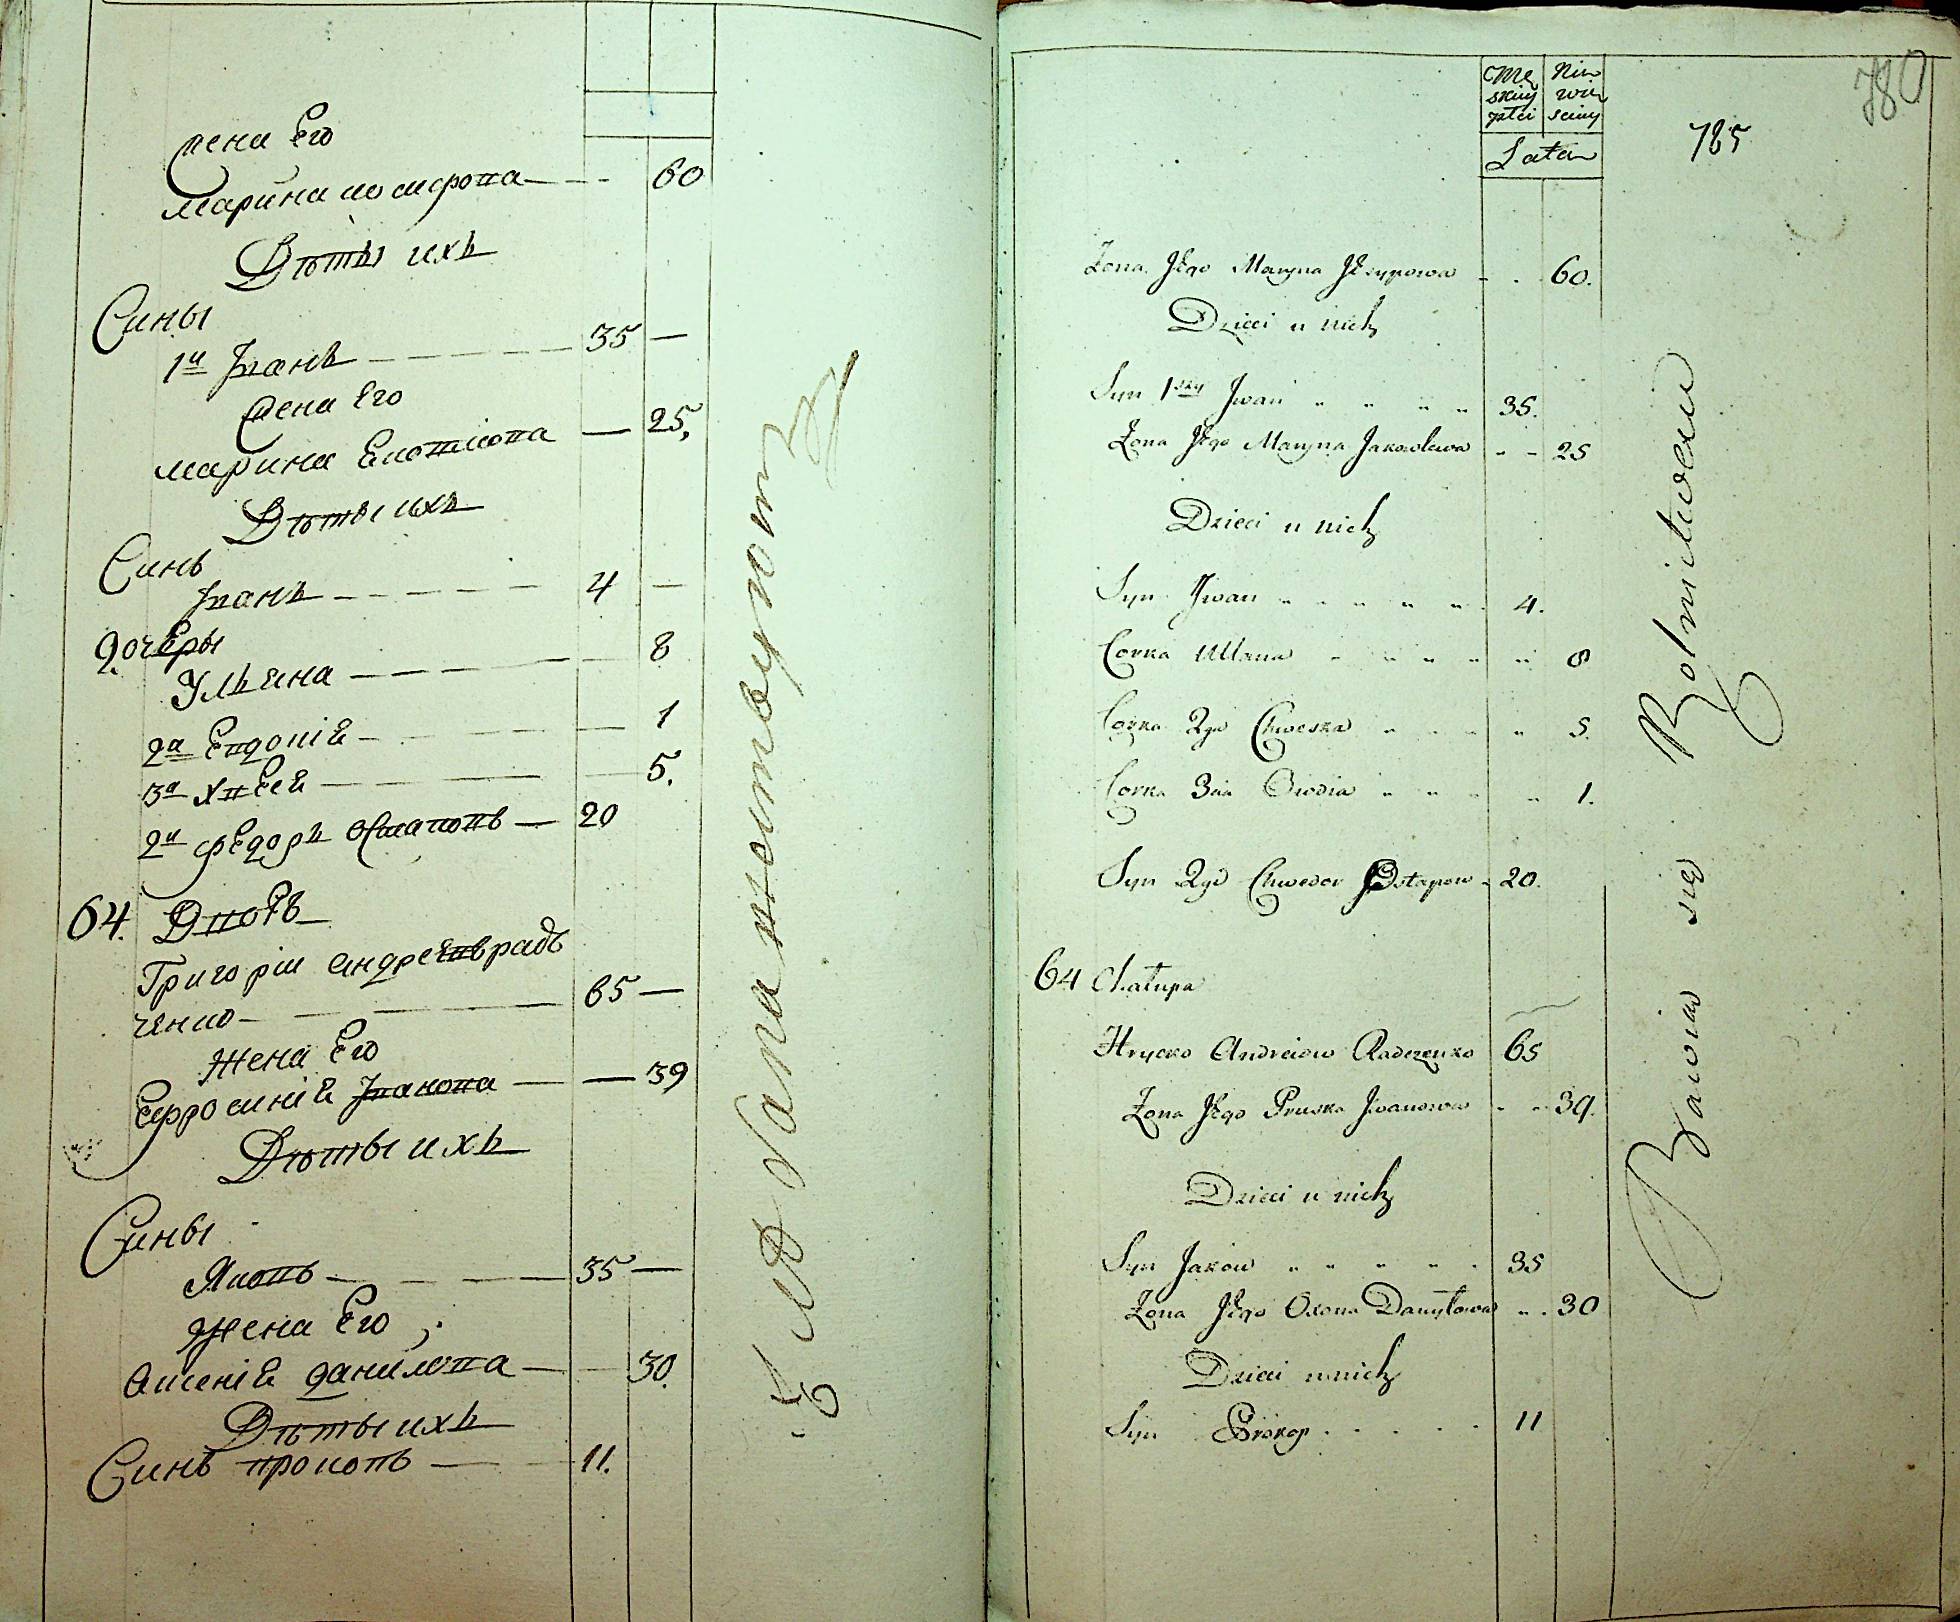 жена Его
марина
60
Дѣты ихъ
Сины
1й Іванъ 35 —
жена Его
марина 25,
Дѣты ихъ
Синъ
Іванъ 4 —
Дочеры
Ульяна 8
2а Евдокія 1
3а Хвеся 5.
2й Федоръ Остаповъ 20
64. Дворъ
Григорій Андреевъ Рад
ченко 65 —
Жена Его
Ефросинія Іванова 39
Дѣты ихъ
Сины
Яковъ 35 —
Жена Его
Аксенія Данилова 30.
Дѣты ихъ
Синъ прокопъ 11.
780
785
Mę
skiey
płci
Nie
wie
sciey
Lata
Zona Jego Maryna 60.
Dzieci u nich
Syn 1szy Jwan " " " " 35.
Zona Jego Maryna Jakowlewa - - 25
Dzieci u nich
Syn Jwan " " " " " 4.
Corka Ullana " " " " " 8
Corka 2ga Chweska " " " " 5.
Corka 3cia Owdia " " " " 1.
Syn 2gi Chwedor Ostapow - 20.
64 Chałupa
Hrycko Andreiow Radczenko 65
Zona Jego Pruska Jwanowa - - 39.
Dzieci u nich
Syn Jakow " " " " " 35
Zona Jego Oxena Daniłowa " . 30
Dzieci u nich
Syn Prokop . . . . . 11
Bawia się Rolnictwem